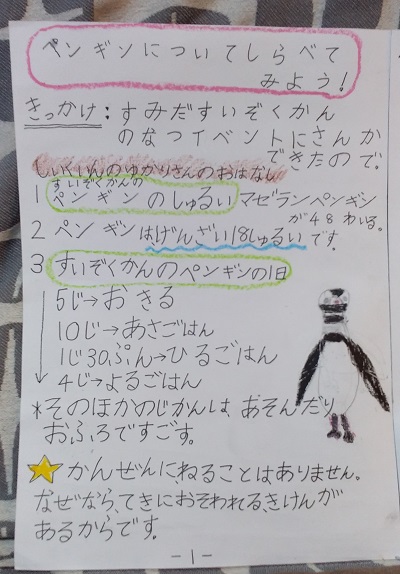 ペンギンについてしらべて
みよう!
きっかけ:すみだすいぞくかん
のなつイベントにさんか
できたので。
しいくいんのゆかりさんのおはなし
すいぞくかんの
1 ペンギンのしゅるい マゼランペンギン
が48わいる。
2 ペンギンはげんざい18しゅるいです。
3 すいぞくかんのペンギンの1日
5じ→おきる
10じ→あさごはん
1じ30ぷん→ひるごはん
4じ→よるごはん
*そのほかのじかんは、あそんだり
おふろですごす。
かんぜんに、ねることはありません。
なぜなら、てきにおそわれる、きけんが
あるからです。
-1-